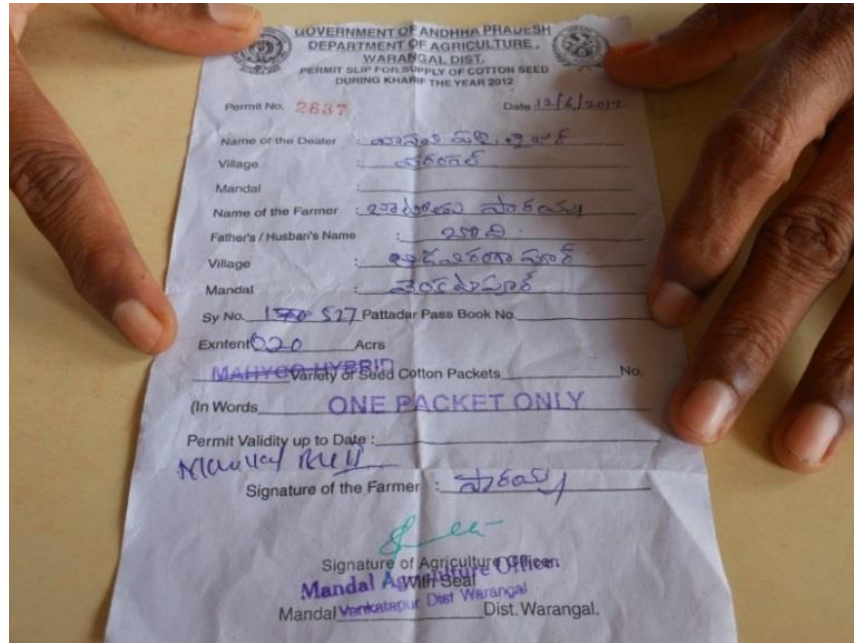 GOVERNMENT OF ANDHHA PRADESH
DEPARTMENT OF AGRICULTURE,
WARANGAL DIST.
PERMIT SLIP FOR SUPPLY OF COTTON SEED
DURING KHARIF THE YEAR 2012
Permit No. 2837 Date 12/6/2012
Name of the Dealer :
Village వరంగల్
Mandal :
Name of the Farmer : సారయ్య
Father's / Husban's Name :
Village :
Mandal : వెంకటాపూర్
Sy No. 527 Pattadar Pass Book No.
Exntent 020 Acrs
MAHYCO HYBRID Variety of Seed Cotton Packets No.
(In Words ONE PACKET ONLY
Permit Validity up to Date :
Signature of the Farmer : సారయ్య
Signature of Agriculture Officer
With Seal
Mandal Agriculture Officer
Mandal Venkatapur Dist Warangal Dist. Warangal.